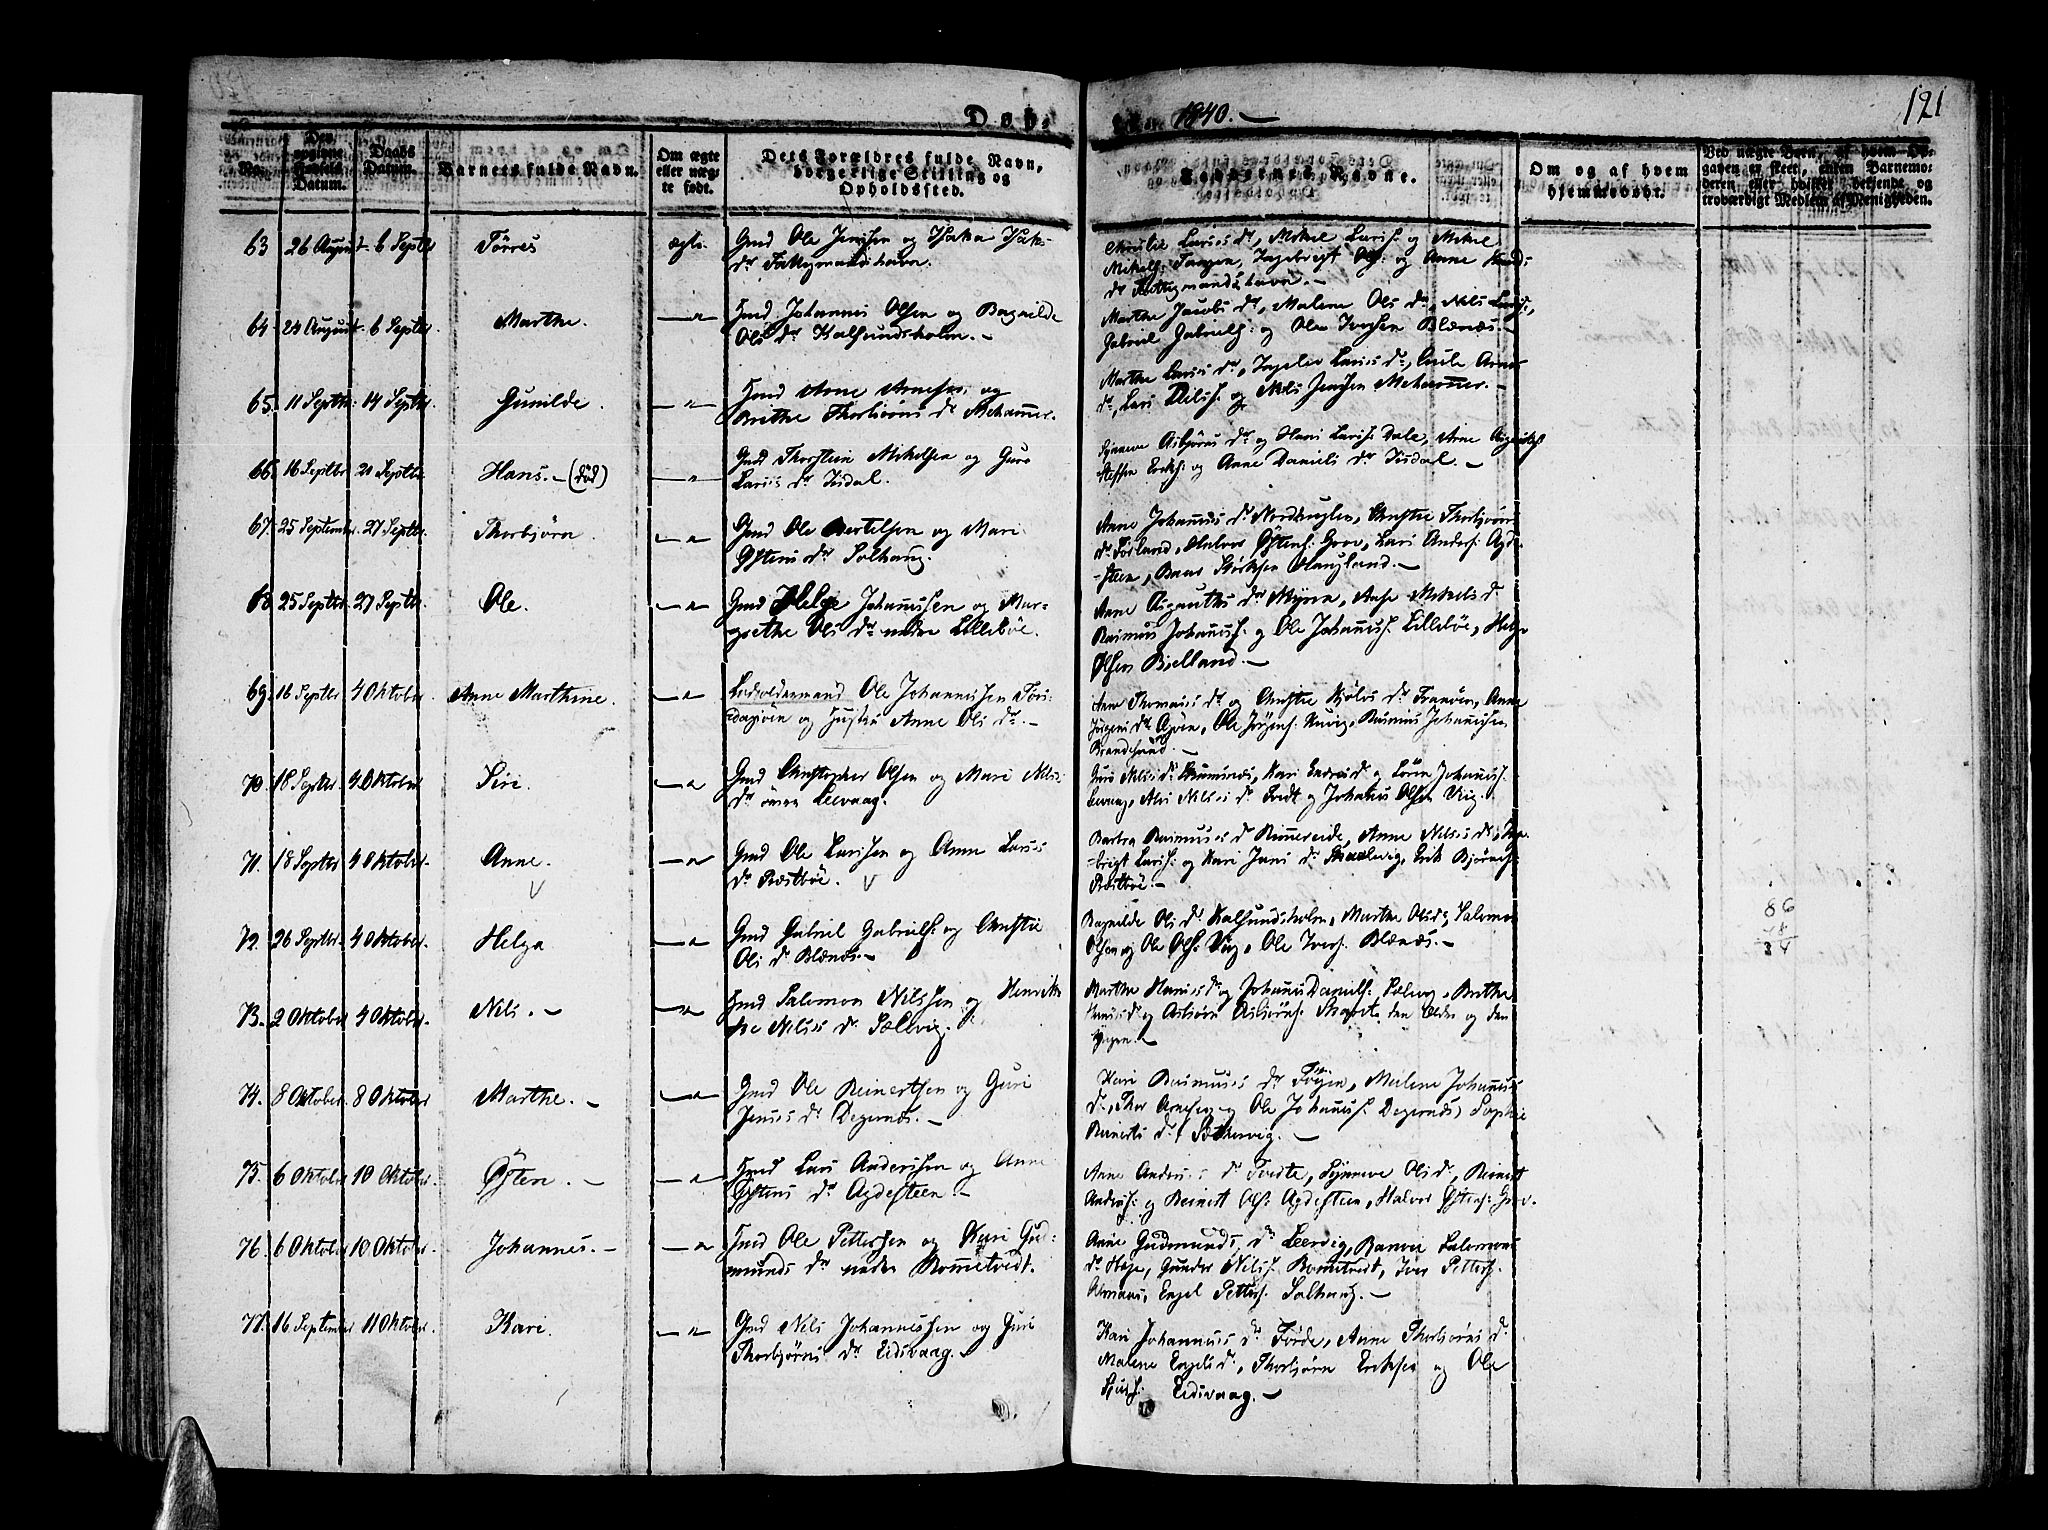 Døb.
1840. —
121
No.
Den
Fødsels
Datum.
Daabs
Datum.
Barnets fulde Navn.
Om ægte
eller uæg-
te født.
Dets Forældres fulde Navn,
borgerlige Stilling og
Opholdssted.
Faddernes Navne.
Om og af hvem
hjemmedøbt.
Ved uægte Børn, af hvem Op-
gaven er skeet, enten Barnemo-
deren eller hvilket bekjendt og
troværdigt Medlem af Menigheden.
63 26 August 6 Septbr Tørres ægte. Gmd Ole Jensen og
dr Fattigmandshavn.
Larses dr, Mikel Lars: og Mikel
Ingebrigt Ols: og Anne
dr Fattigmandshavn. —
64. 24 August 6 Septbr Marthe. —"— Hmd Johannes Olsen og Ragnilde
Ols dr Kalsundsholm. —
Marthe Jacobs dr, Malene Ols dr, Nils Lars:,
Gabriel Gabriels: og Ole Iversen Blænæs. —
65. 11 Septbr. 14 Septbr. Gunilde. —"— Hmd Arne Arnesen og
Brithe Thorbiørns dr Mehammer.
Marthe Larses dr, Larses dr, Arne
dr, Lars Nils: og Nils Jensen Mehammer. —
66. 16 Septbr. 20 Septbr. Hans. — (død) —"— Gmd Thorstein Mikelsen og Guro
Larses dr Tisdal.
Synneve Asbjørns dr og Hans Lars: Dale, Arne
Steffen Eriks: og Anne Daniels dr Tisdal. —
67. 25 September. 27 Septbr. Thorbjørn. —"— Gmd Ole Bertelsen og Mari
Østens dr Solhaug.
Anne Johannes dr Nordhuglen, Christie Thorbjørns
dr Førland, Halvor Østens: Grov, Lars Anders: Agde-
-steen, Baar Størksen Haugland. —
68 25 Septbr. 27 Septbr. Ole. —"— Gmd Helge Johannessen og Mar-
grethe Ols dr nedre Lillebøe.
Anne Asgauths dr Myra, Mikels dr
Rasmus Johanns: og Ole Johanns: Lillebøe, Helge
Olsen Bielland. —
69. 16 Septbr 4 Oktober Anne Marthine. —"— Ole Johannessen
og Hustru Anne Ols dr. —
Thomases dr og Christie dr Anne
Jørgens dr Ole Jørgens: Rasmus Johannessen
Brandesund. —
70. 18 Septbr. 4 Oktober Siri. —"— Gmd Christopher Olsen og Mari Nils:
dr øvre Leevaag.
Guri Nils: dr Kari dr og Søren Johanns:
Leevaag, Nils: dr Tvedt og Johannes Olsen Vig. —
71. 18 Septbr 4 Oktober. Anne. —"— Gmd Ole Larssen og Anne Larses
dr Røstbøe.
Rasmuses dr Rimmereide, Anne Nils: dr, Inge-
-brigt Lars: og Kari Jans dr Skaalevig, Erik Bjørns:
Røstbøe. —
72. 26 Septbr. 4 Oktober. Helga —"— Gmd Gabriel Gabriels: og Christie
Ols dr Blænæs. —
Ragnilde Ols dr Kalsundsholm, Marthe Ols dr, Salomon
Olsen og Ole Ols: Vig, Ole Ivers: Blænæs. —
86
34
73. 2 Oktober 4 Oktober. Nils. — —"— Hmd Salomon Nilssen og Henrik-
ke Nils: dr Sælevig.
Marthe Hanses dr og Johannes Daniels: Sælevig, Brithe
dr og Asbiørn Asbiørns: den Eldre og den
Yngre. —
74. 8 Oktober. 8 Oktober Marthe. — —"— Gmd Ole Reinertsen og Guri
Jenses dr Degernæs. —
Kari Rasmuses dr Føyen, Malene Johannes
dr, Thor Arnesen og Ole Johanns: Degernæs, Sophie
Reinerts dr, Sætervig. —
75. 6 Oktober 10 Oktober. Østen. — —"— Hmd Lars Anderssen og Anne
Østens dr Agdesteen. —
Anne Anders: dr Tvedte, Synneve Ols dr, Reinert
Anders: og Reinert Ols: Agdesteen, Halvor Østens: Grov.
76. 6 Oktober 10 Oktober. Johannes. — —"— Hmd Ole Pettersen og Kari Gud-
munds dr nedre Rommetvedt.
Anne Gudmunds dr Leervig, Salomons
dr Høje, Gunder Nils: Rommetvedt, Iver Petters:
Almaas, Engel Petters: Solhaug. —
77. 16 September 11 Oktober. Kari. —"— Gmd Nils Johannessen og Guri
Thorbjørns dr Eidsvaag. —
Kari Johannes dr Førde, Anne Thorbjørns dr
Malene Engels dr, Thorbjørn Eriksen og Ole
Eidsvaag. —